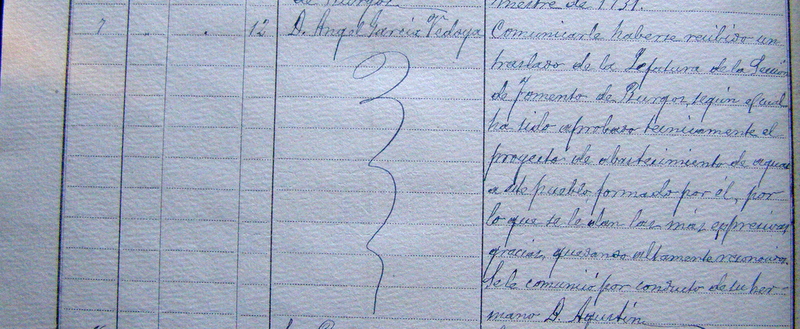 de Burgos
mestre de 1931.
7 " " 12 D. Angel García Vedoya
Comunicarle haberse recibido un
traslado de la Jefatura de la Sección
de Fomento de Burgos, según el cual
ha sido aprobado técnicamente el
proyecto de abastecimiento de aguas
a este pueblo formado por él, por
lo que se le dan las más expresivas
gracias, quedando altamente reconocidos.
Se le comunicó por conducto de su her-
mano D. Agustín